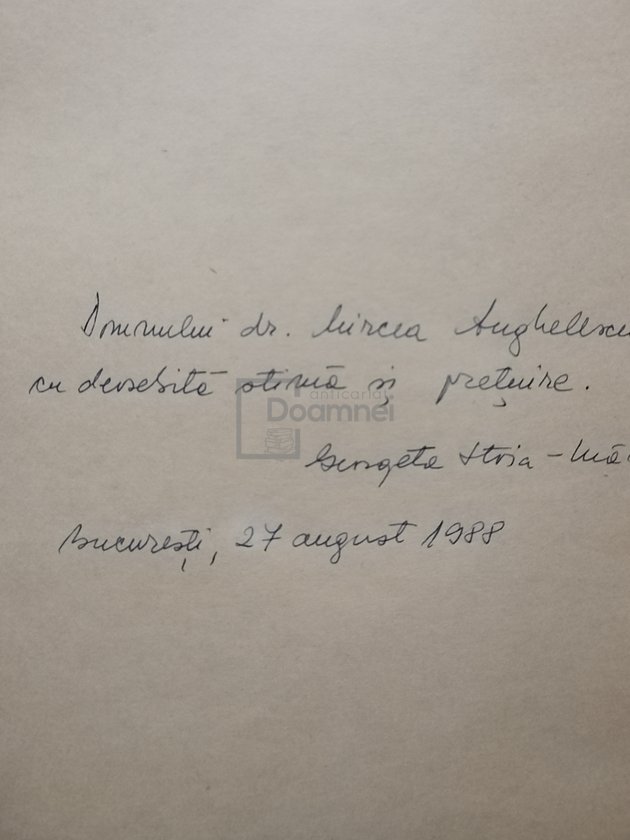 Domnului dr. Mircea Anghelescu
cu deosebită stimă și prețuire.
anticariat
Doamnei
Georgeta Stoia - Mă
București, 27 august 1988